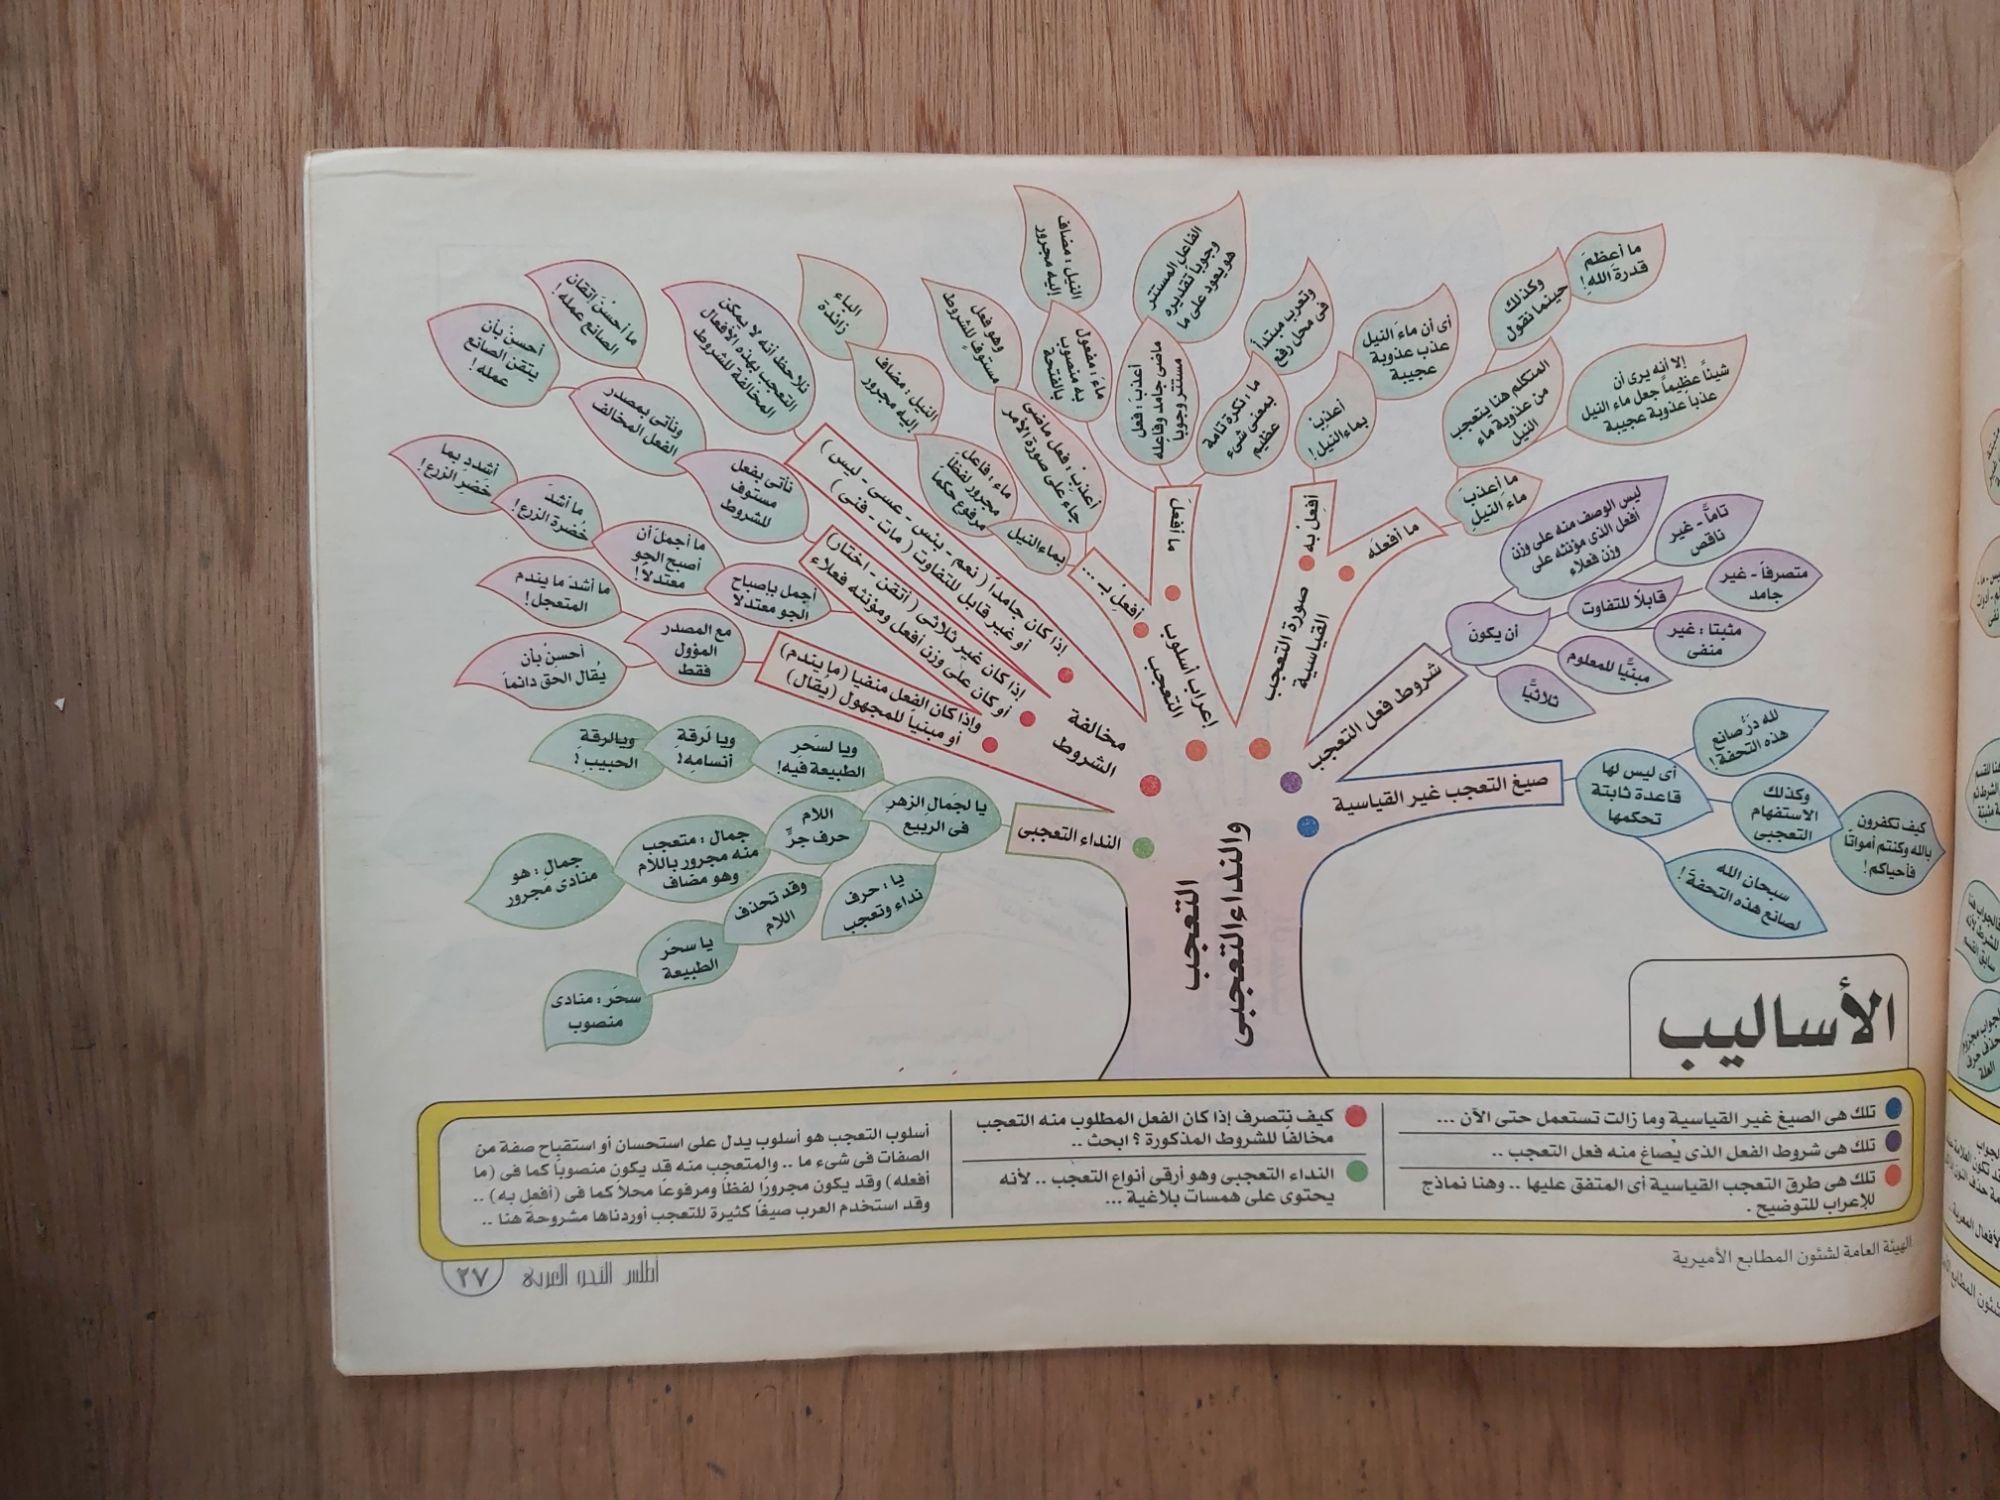 الأساليب
التعجب
والنداء التعجبى
صيغ التعجب غير القياسية
أى ليس لها
قاعدة ثابتة
تحكمها
لله درُّ صانع
هذه التحفة!
وكذلك
الاستفهام
التعجبى
كيف تكفرون
بالله وكنتم أمواتًا
فأحياكم!
سبحان الله
لصانع هذه التحفة!
شروط فعل التعجب
أن يكونَ
ثلاثيًّا
مبنيًّا للمعلوم
مثبتا: غير
منفى
قابلاً للتفاوت
متصرفاً - غير
جامد
تاماً - غير
ناقص
ليس الوصف منه على وزن
أفعل الذى مؤنثه على
وزن فعلاء
صورة التعجب
القياسية
ما أفعلَه
ما أعذبَ
ماءَ النيلِ
المتكلم هنا يتعجب
من عذوبة ماء
النيل
إلا أنه يرى أن
شيئاً عظيماً جعل ماء النيل
عذباً عذوبة عجيبة
وكذلك
حينما نقول
ما أعظمَ
قدرةَ الله!
أفعِلْ به
أعذِبْ
بماءِ النيل!
أى أن ماءَ النيل
عذب عذوبة
عجيبة
إعراب أسلوب
التعجب
ما أفعلَ
ما: نكرة تامة
بمعنى شىء
عظيم
وتعرب مبتدأ
فى محل رفع
أعذبَ: فعل
ماضى جامد وفاعله
مستتر وجوباً
الفاعل المستتر
وجوباً تقديره
هو يعود على ما
ماءَ: مفعول
به منصوب
بالفتحة
النيل: مضاف
إليه مجرور
أفعِلْ بـ ...
أعذِبْ: فعل ماضى
جاء على صورة الأمر
وهو فعل
مستوفٍ للشروط
بماءِ النيل
ماء: فاعل
مجرور لفظاً
مرفوع حكماً
النيل: مضاف
إليه مجرور
الباء
زائدة
مخالفة
الشروط
إذا كان جامداً ( نعم - بئس - عسى - ليس )
أو غير قابل للتفاوت ( مات - فنى )
نلاحظ أنه لا يمكن
التعجب بهذه الأفعال
المخالفة للشروط
إذا كان غير ثلاثى ( أتقن - اختار)
أو كان على وزن أفعل ومؤنثه فعلاء
نأتى بفعل
مستوف
للشروط
ونأتى بمصدر
الفعل المخالف
ما أحسنَ إتقان
الصانع عمله!
أحسنْ بأن
يتقن الصانع
عمله!
أجمل بإصباح
الجو معتدلاً
ما أجملَ أن
أصبح الجو
معتدلاً!
ما أشدَ
خُضرة الزرع!
أشددِ بما
خَضِر الزرع!
وإذا كان الفعل منفيا (ما يندم)
أو مبنياً للمجهول (يُقال)
مع المصدر
المؤول
فقط
ما أشدَ ما يندم
المتعجل!
أحسنْ بأن
يُقال الحق دائماً
النداء التعجبى
يا لجَمال الزهر
فى الربيع
ويا لسَحر
الطبيعة فيه!
ويا لَرقةِ
أنسامِه!
ويالرقةِ
الحبيبِ!
اللام
حرف جرٍّ
جمال: متعجب
منه مجرور باللام
وهو مضاف
جمال: هو
منادى مجرور
يا: حرف
نداء وتعجب
وقد تحذف
اللام
يا سحَر
الطبيعة
سحَر: منادى
منصوب
تلك هى الصيغ غير القياسية وما زالت تستعمل حتى الآن ...
تلك هى شروط الفعل الذى يُصاغ منه فعل التعجب ..
تلك هى طرق التعجب القياسية أى المتفق عليها .. وهنا نماذج
للإعراب للتوضيح .
كيف نتصرف إذا كان الفعل المطلوب منه التعجب
مخالفًا للشروط المذكورة ؟ ابحث ..
النداء التعجبى وهو أرقى أنواع التعجب .. لأنه
يحتوى على همسات بلاغية ...
أسلوب التعجب هو أسلوب يدل على استحسان أو استقباح صفة من
الصفات فى شىء ما .. والمتعجب منه قد يكون منصوباً كما فى (ما
أفعله) وقد يكون مجرورًا لفظاً ومرفوعاً محلاً كما فى (أفعل به) ..
وقد استخدم العرب صيغًا كثيرة للتعجب أوردناها مشروحة هنا ..
الهيئة العامة لشئون المطابع الأميرية
أطلس النحو العربى
٢٧